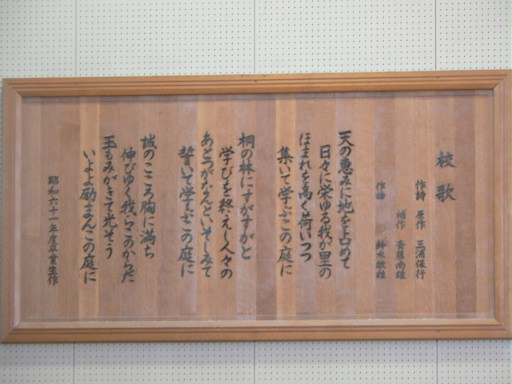 校歌
作詩 原作 三浦保行
補作 斎藤尚雄
作曲 鈴木敏雄
天の恵みに地を占めて
日々に栄ゆる我が里の
ほまれを高く荷いつつ
集いて学ぶこの庭に
桐の林にすがすがと
学びを終えし人々の
あとつがなんといそしみて
誓いて学ぶこの庭に
誠のこころ胸に満ち
伸びゆく我いこのからだ
玉もみがきて光そう
いよよ励まんこの庭に
昭和六十一年度卒業生作